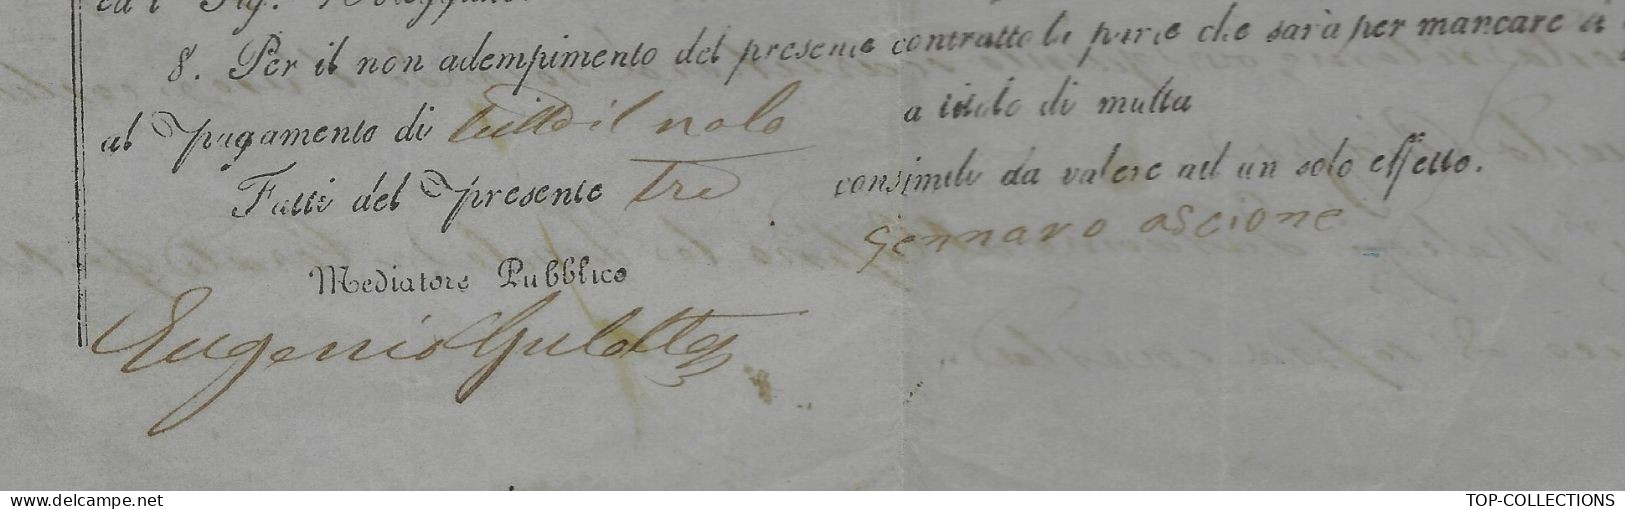 ed i Sig. Noleggiat
8. Per il non adempimento del presente contratto la parte che sarà per mancare si
al pagamento di tutto il nolo a titolo di multa
Fatti del presente tre consimili da valere ad un solo effetto.
Gennaro ascione
Mediatore Pubblico
Eugenio Gulotta
www.delcampe.net
TOP-COLLECTIONS